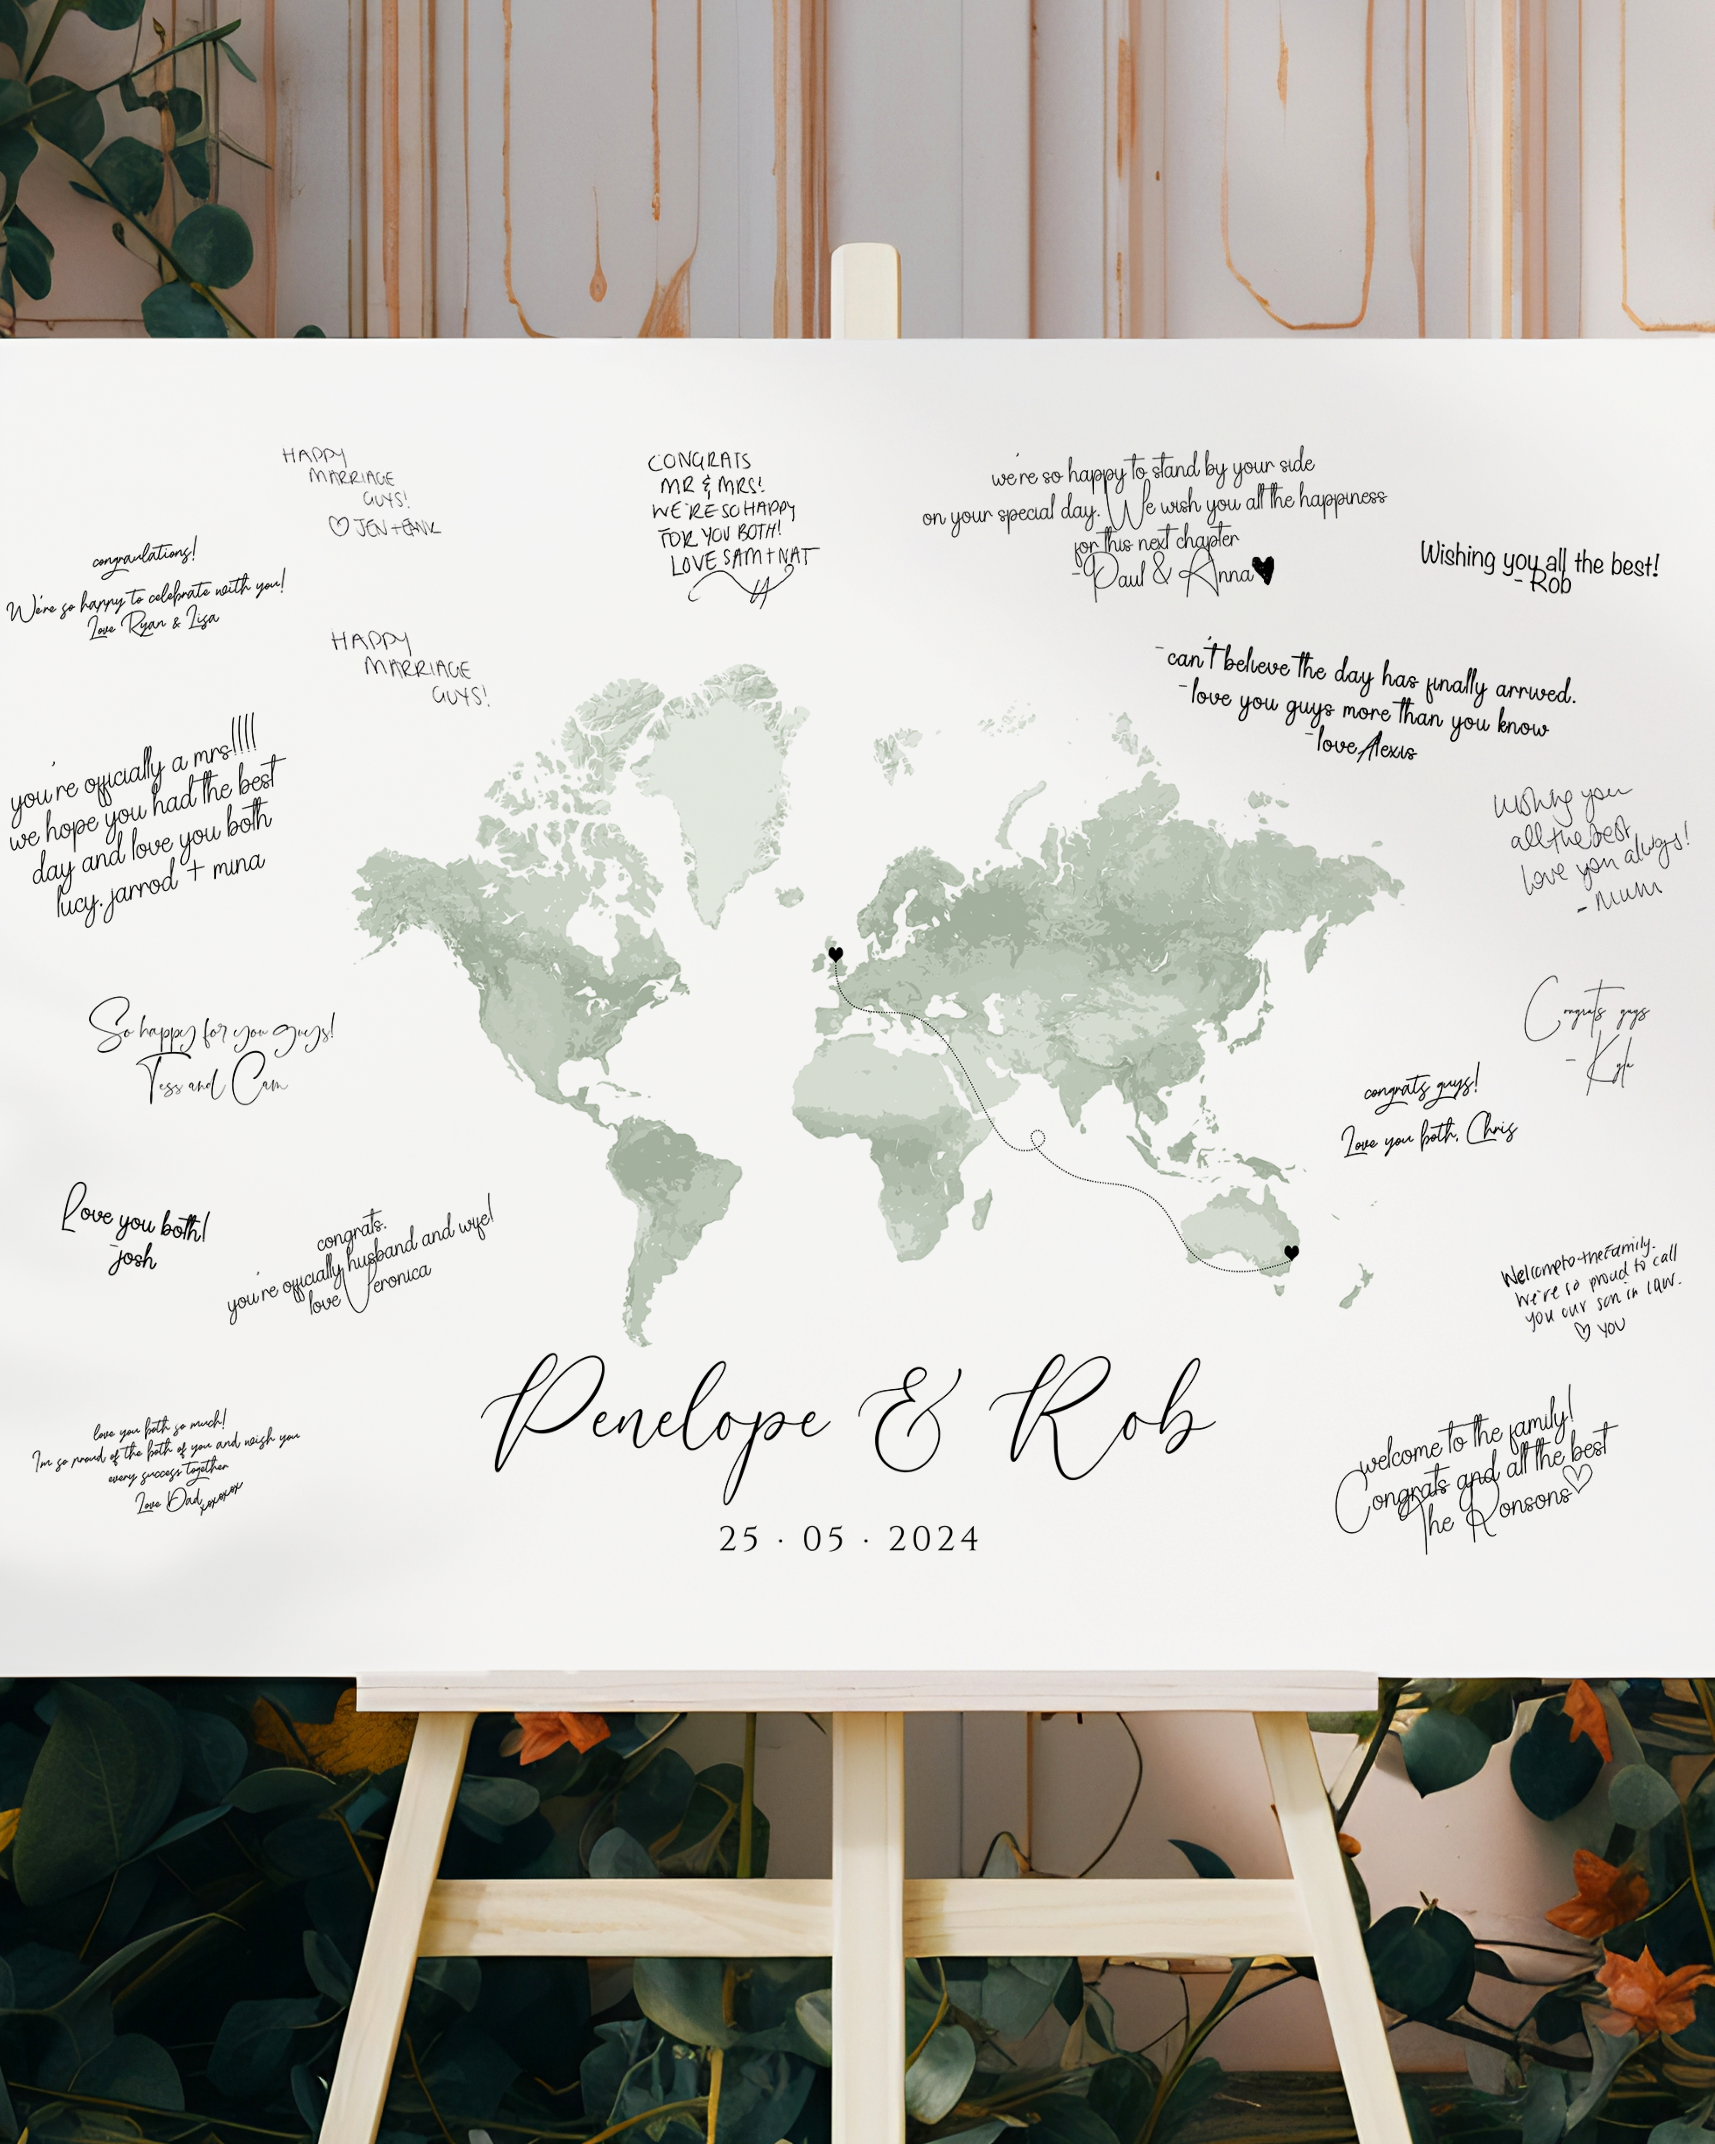 HAPPY
MARRIAGE
GUYS!
♡ JEN +
CONGRATS
MR & MRS!
WE'RE SO HAPPY
FOR YOU BOTH!
LOVE SAM + NAT
we're so happy to stand by your side
on your special day. We wish you all the happiness
for this next chapter
- Paul & Anna ♥
Wishing you all the best!
- Rob
congraulations!
We're so happy to celebrate with you!
Love Ryan & Lisa
HAPPY
MARRIAGE
GUYS!
-can't believe the day has finally arrived.
-love you guys more than you know
-love Alexis
you're officially a mrs!!!!
we hope you had the best
day and love you both
lucy. jarrod + mina
Wishing you
all the best
love you always!
- Mum
So happy for you guys!
Tess and Cam
Congrats guys
- Kyle
congrats guys!
Love you both, Chris
Love you both!
-josh
congrats.
you're officially husband and wife!
love Veronica
Welcome to the family.
We're so proud to call
you our son in law.
♡ YOU
Penelope & Rob
25 · 05 · 2024
love you both so much!
I'm so proud of the both of you and wish you
every success together
Love Dad xoxoxox
welcome to the family!
Congrats and all the best
The Ronsons ♡